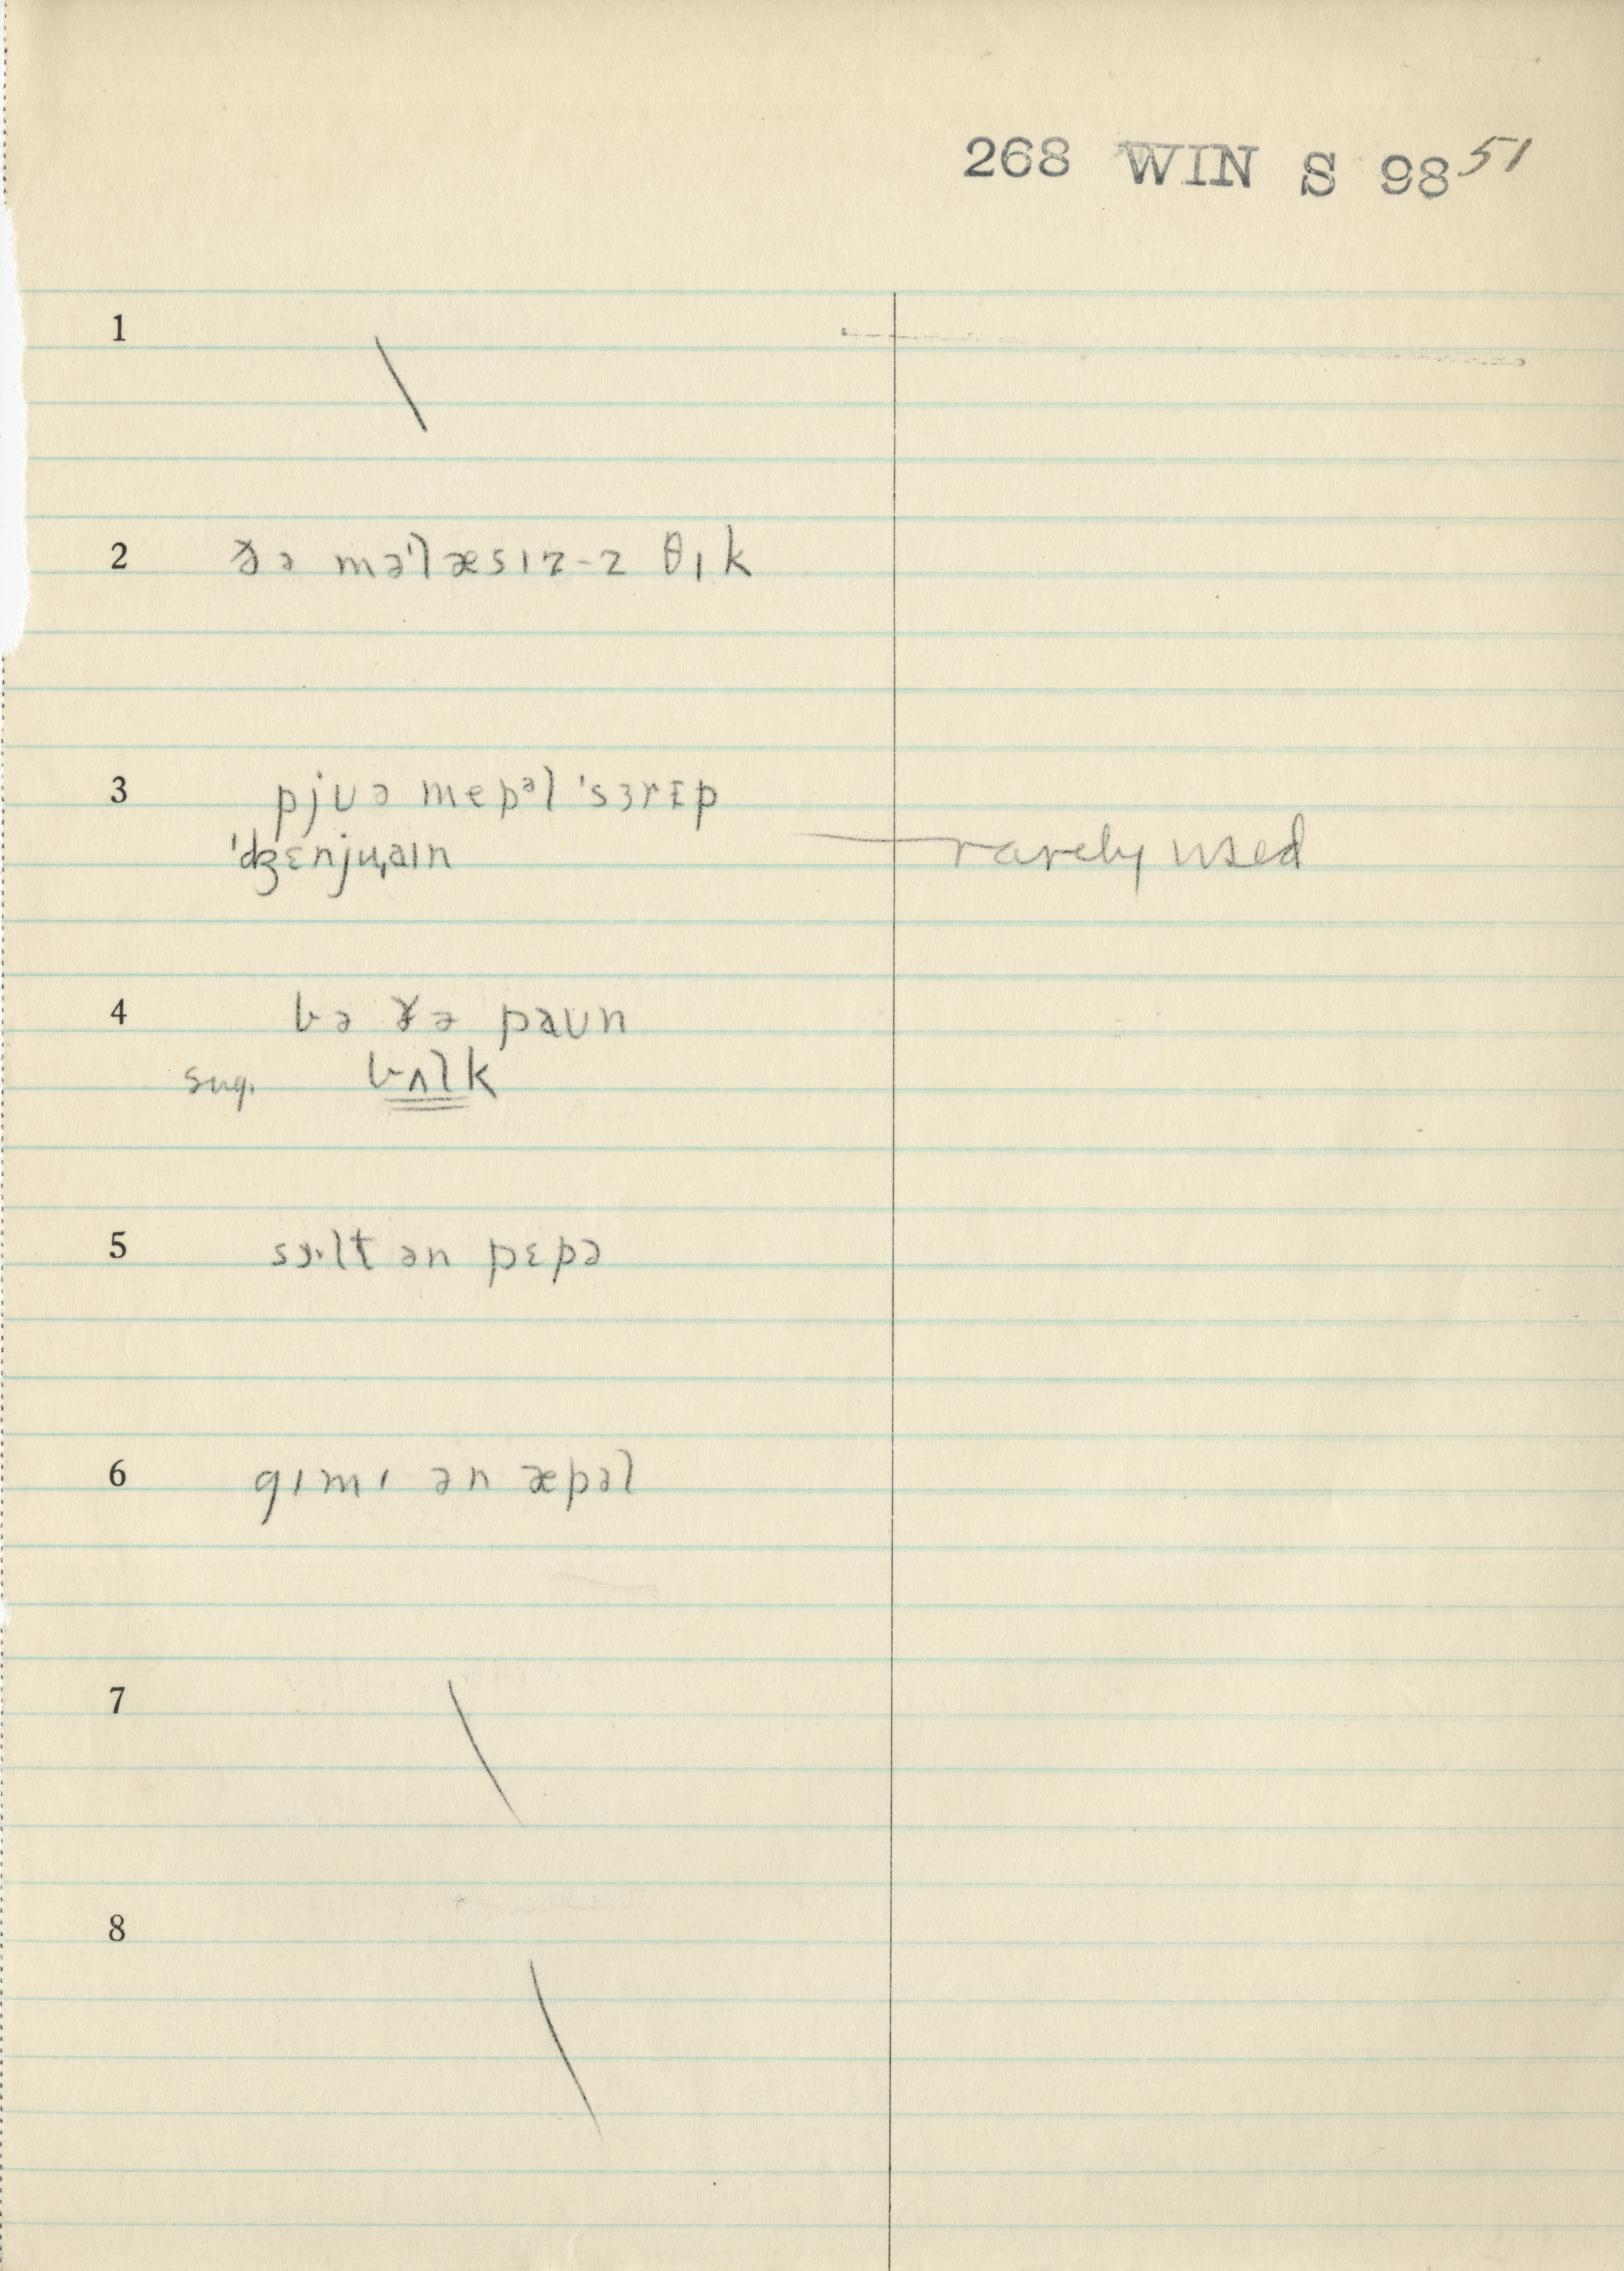 268 WIN S 98 51
1
2 ðə məˈlæsɪz-z θɪk
3 pjʊə mepᵊl ˈsɜrɪp
ˈdʒɛnjuˌaɪn rarely used
4 bə ðə paʊn
sug. bʌlk
5 sɔ·lt ən pɛpə
6 gɪmɪ ən æpəl
7
8